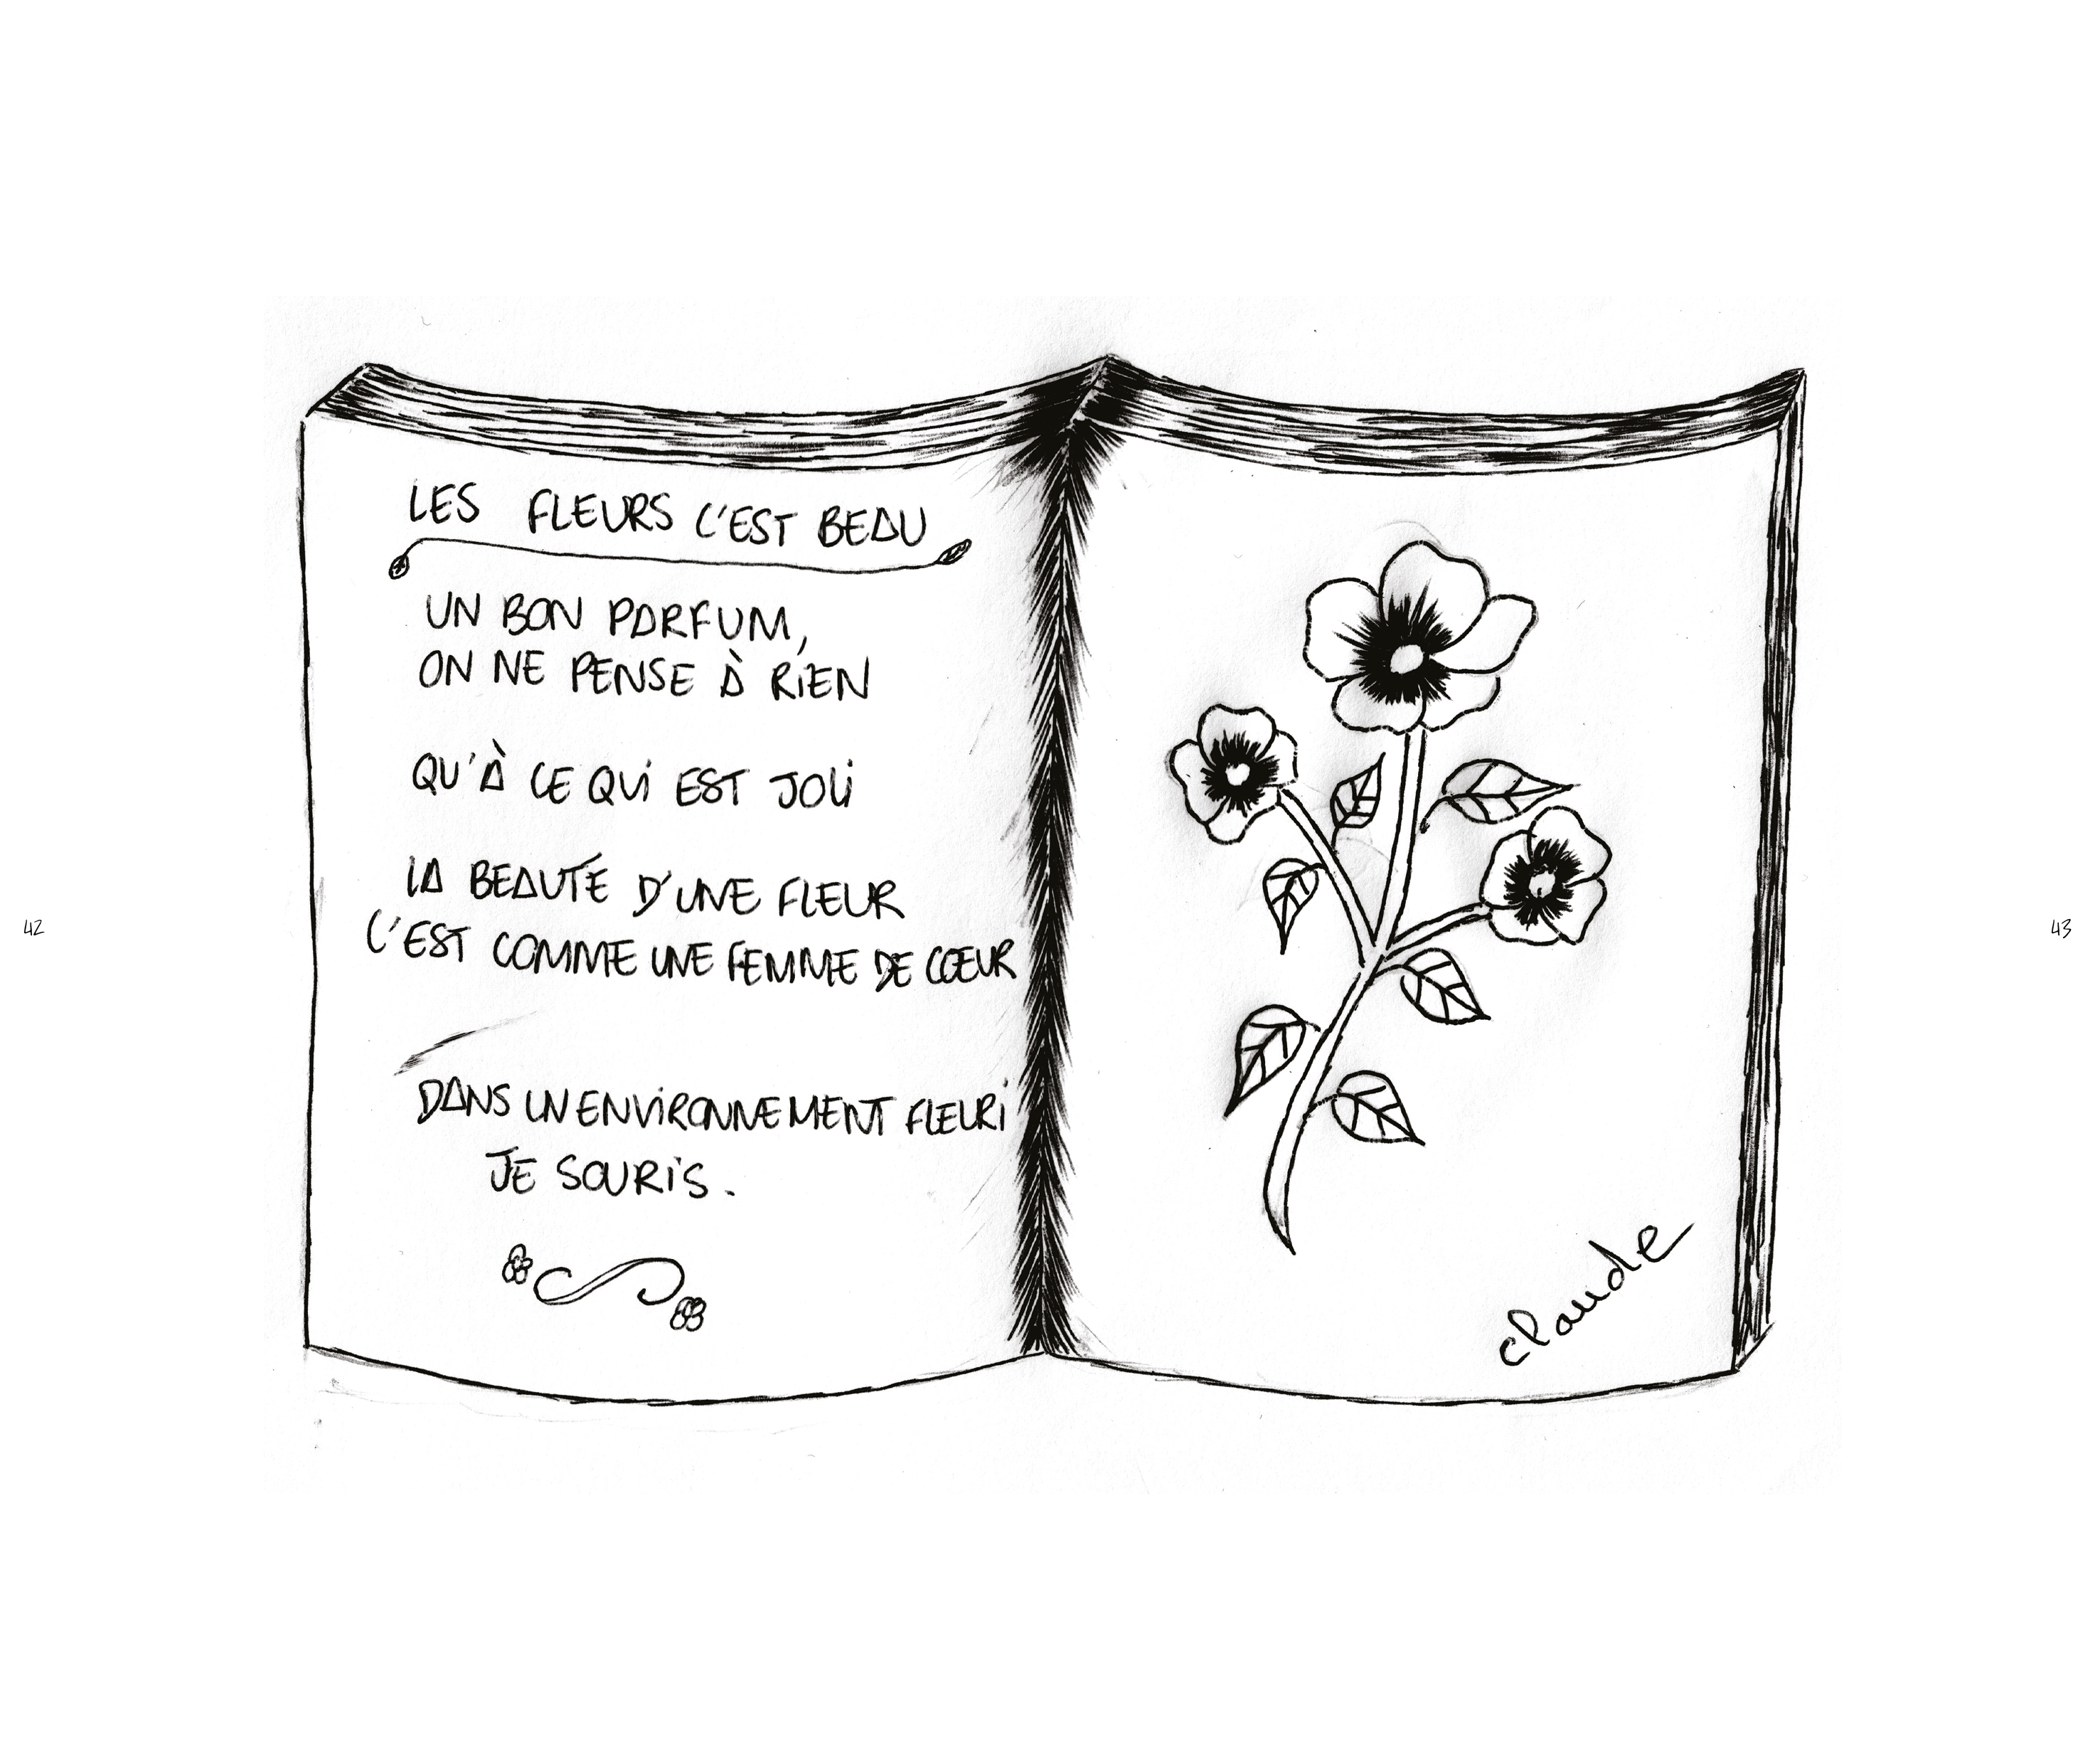 LES FLEURS C'EST BEAU
UN BON PARFUM,
ON NE PENSE À RIEN
QU'À CE QUI EST JOLI
LA BEAUTÉ D'UNE FLEUR
C'EST COMME UNE FEMME DE CŒUR
DANS UN ENVIRONNEMENT FLEURI
JE SOURIS.
claude
42
43